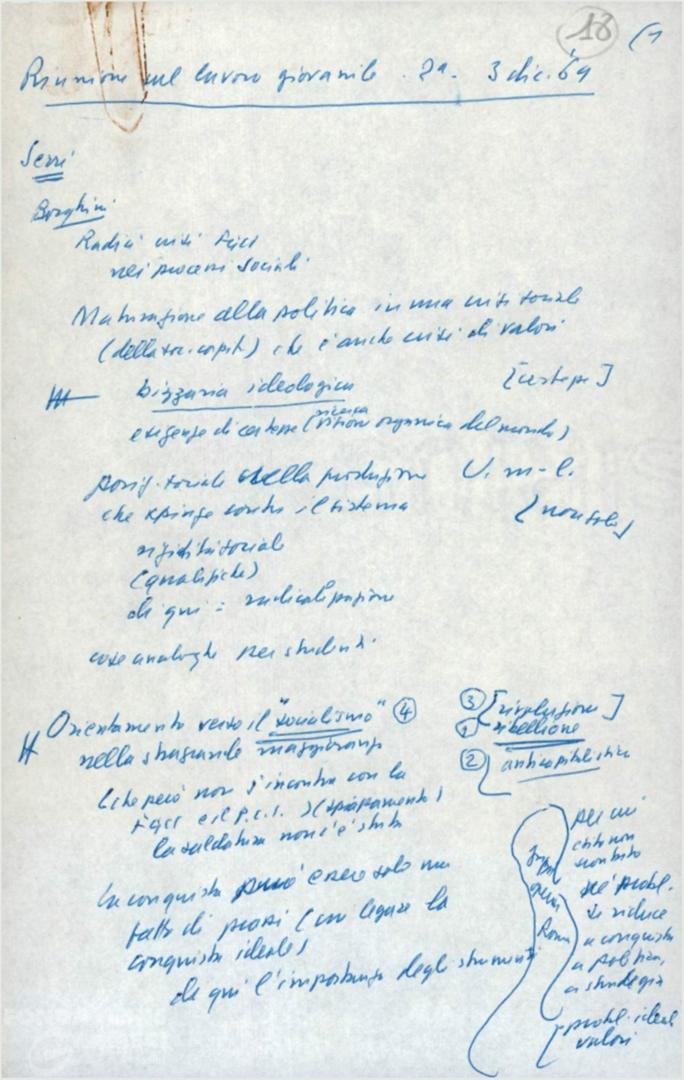 18 (1
Riunione sul lavoro giovanile . 2ª. 3 dic. '69
Serri
Borghini
Radici crisi FGCI
nei processi sociali
Maturazione alla politica in una crisi sociale
(della soc. capit.) che è anche crisi di valori
bizzarria ideologica [certezze]
esigenze di certezze (ricerca visione organica del mondo)
sociale della produzione U. m-l.
che spinge contro il sistema [non solo]
rigidità sociale
(qualifiche)
di qui = radicalizzazione
cose analoghe per studenti.
Orientamento verso il "socialismo" ④ ③ [rivoluzione]
nella stragrande maggioranza ① ribellione
② anticapitalistica
(che però non s'incontra con la
FGCI e il P.C.I.
la saldatura non c'è stata
La conquista può essere solo un
fatto di prassi (cui legare la
conquista ideale)
di qui l'importanza degli strumenti
per cui
né probl.
si riduce
a conquista
a politica,
a strategia
Roma
probl. ideale
valori